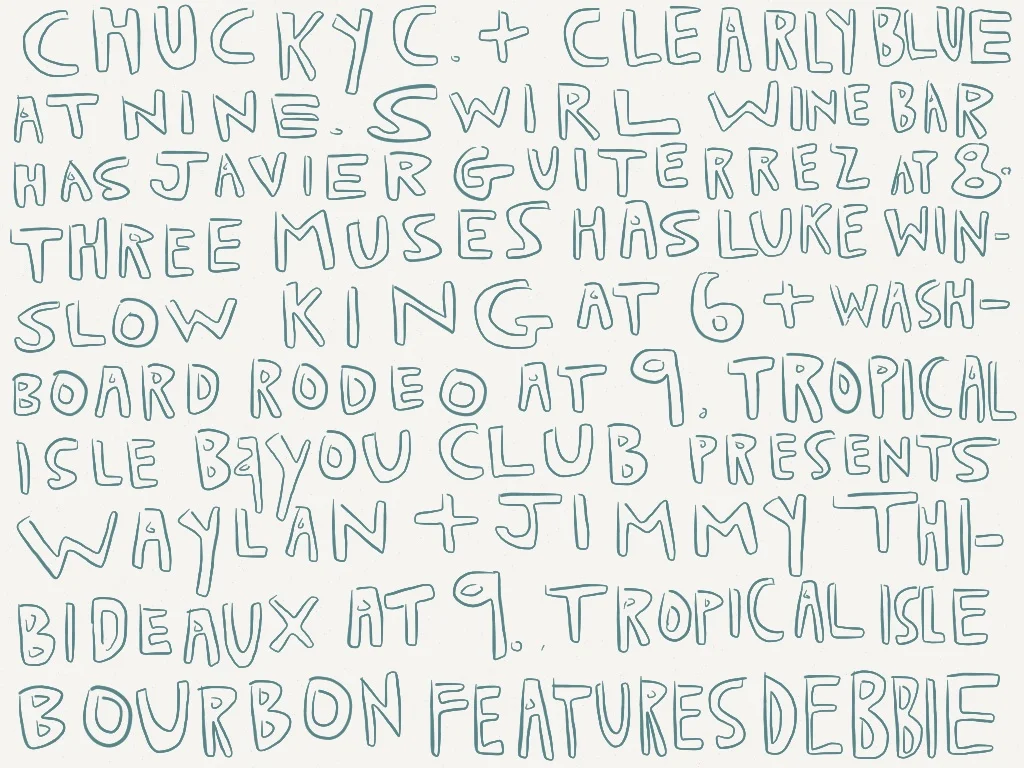 CHUCKY C. + CLEARLY BLUE
AT NINE. SWIRL WINE BAR
HAS JAVIER GUITERREZ AT 8.
THREE MUSES HAS LUKE WIN-
SLOW KING AT 6 + WASH-
BOARD RODEO AT 9. TROPICAL
ISLE BAYOU CLUB PRESENTS
WAYLAN + JIMMY THI-
BIDEAUX AT 9. TROPICAL ISLE
BOURBON FEATURES DEBBIE